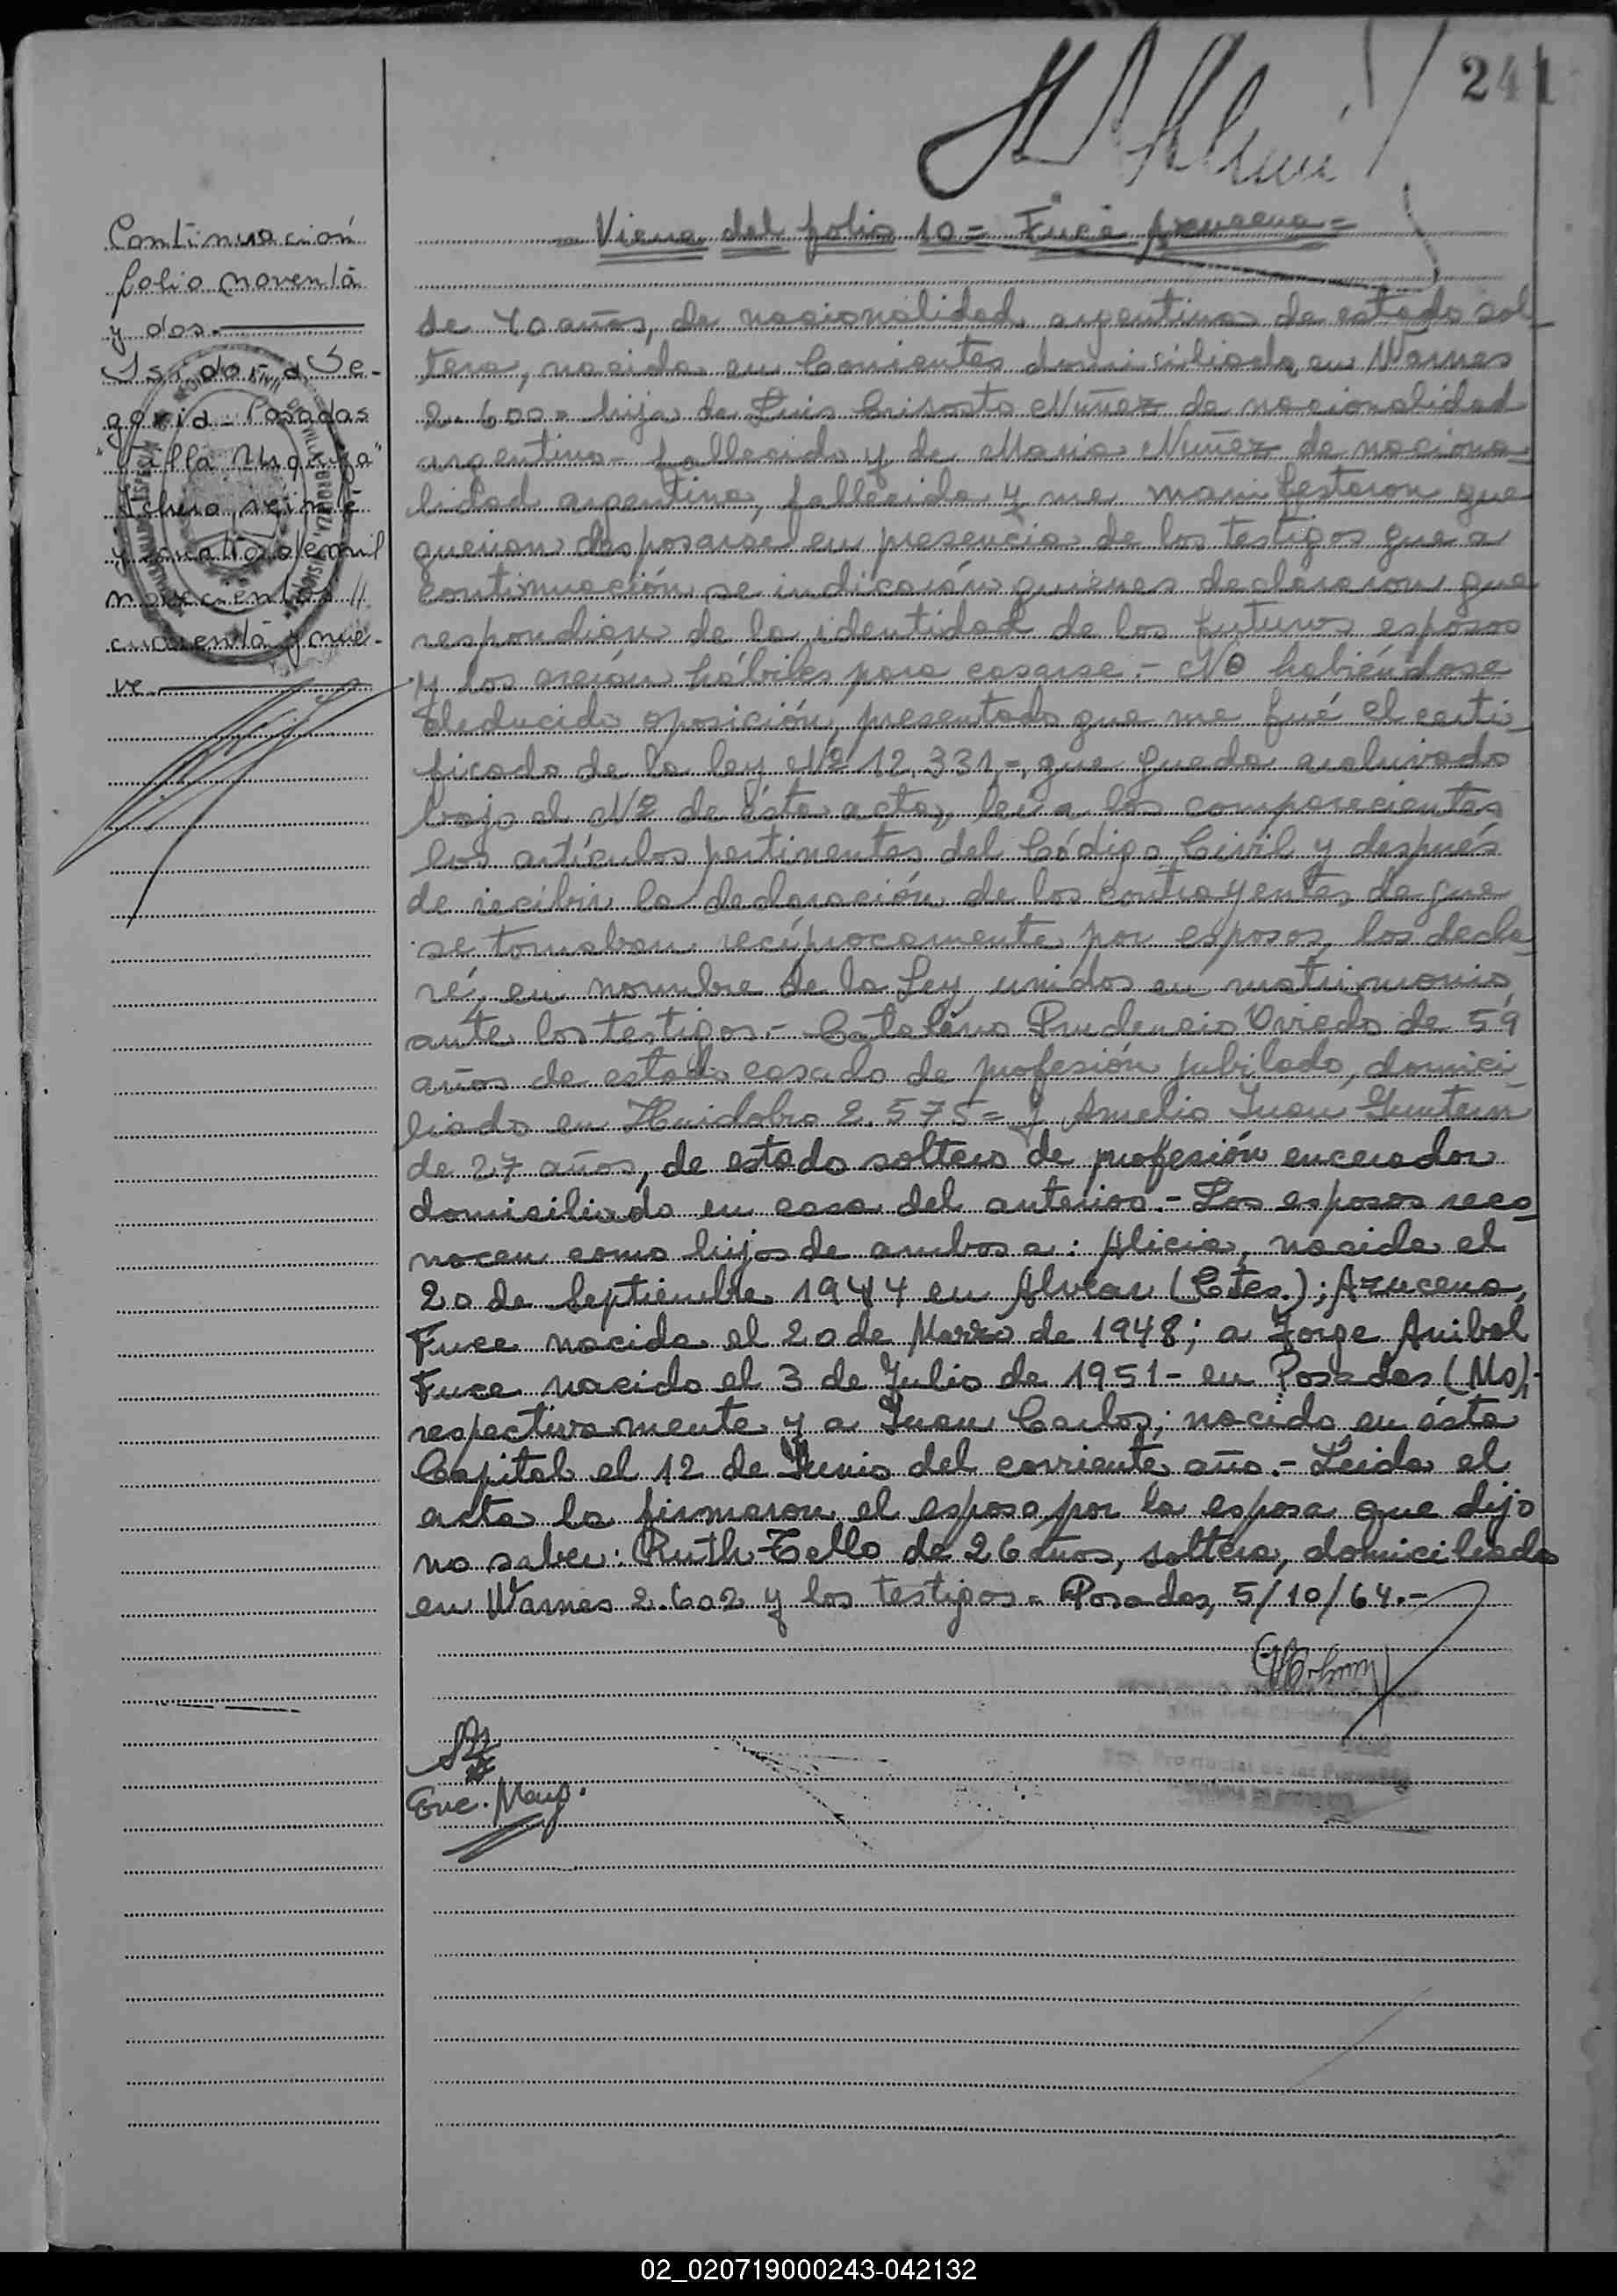 241
Continuación
folio noventa
y dos.
Isidora Se-
govia - Posadas
"Villa Urquiza"
Febrero, veinte
y cuatro de mil
novecientos //
cuarenta y nue-
ve
Viene del folio 10 = Fuce Azucena =
de 40 años, de nacionalidad argentina de estado sol-
tera, nacida en Corrientes domiciliada en Warnes
2.600 = hija de Luis Crisosto Nuñez de nacionalidad
argentina - fallecido y de Maria Nuñez de naciona-
lidad argentina, fallecida y me manifestaron que
querian desposarse en presencia de los testigos que a
continuación se indicarán quienes declararon que
respondian de la identidad de los futuros esposos
y los creían hábiles para casarse. - No habiéndose
deducido oposición, presentado que me fué el certi-
ficado de la ley Nº 12.331 -, que queda archivado
bajo el Nº de ésta acta, leí a los comparecientes
los artículos pertinentes del Código Civil y después
de recibir la declaración de los contrayentes de que
se tomaban recíprocamente por esposos, los decla-
ré, en nombre de la Ley, unidos en matrimonio
ante los testigos. - Catalino Prudencio Oviedo de 59
años de estado casado de profesión jubilado, domici-
liado en Huidobro 2.575 = y Amelio Juan
de 27 años, de estado soltero de profesión encerador
domiciliado en casa del anterior. - Los esposos reco-
nocen como hijos de ambos a: Alicia, nacida el
20 de Septiembre 1944 en Alvear (Ctes.); Azucena,
Fuce nacida el 20 de Marzo de 1948; a Jorge Anibal
Fuce nacido el 3 de Julio de 1951 - en Posadas (Mo)-
respectivamente y a Juan Carlos; nacido en ésta
Capital el 12 de Junio del corriente año. - Leida el
acta la firmaron el esposo por la esposa que dijo
no saber: Ruth Tello de 26 años, soltera, domiciliada
en Warnes 2.602 y los testigos = Posadas, 5/10/64.-
Enc. Mayo.
02_020719000243-042132